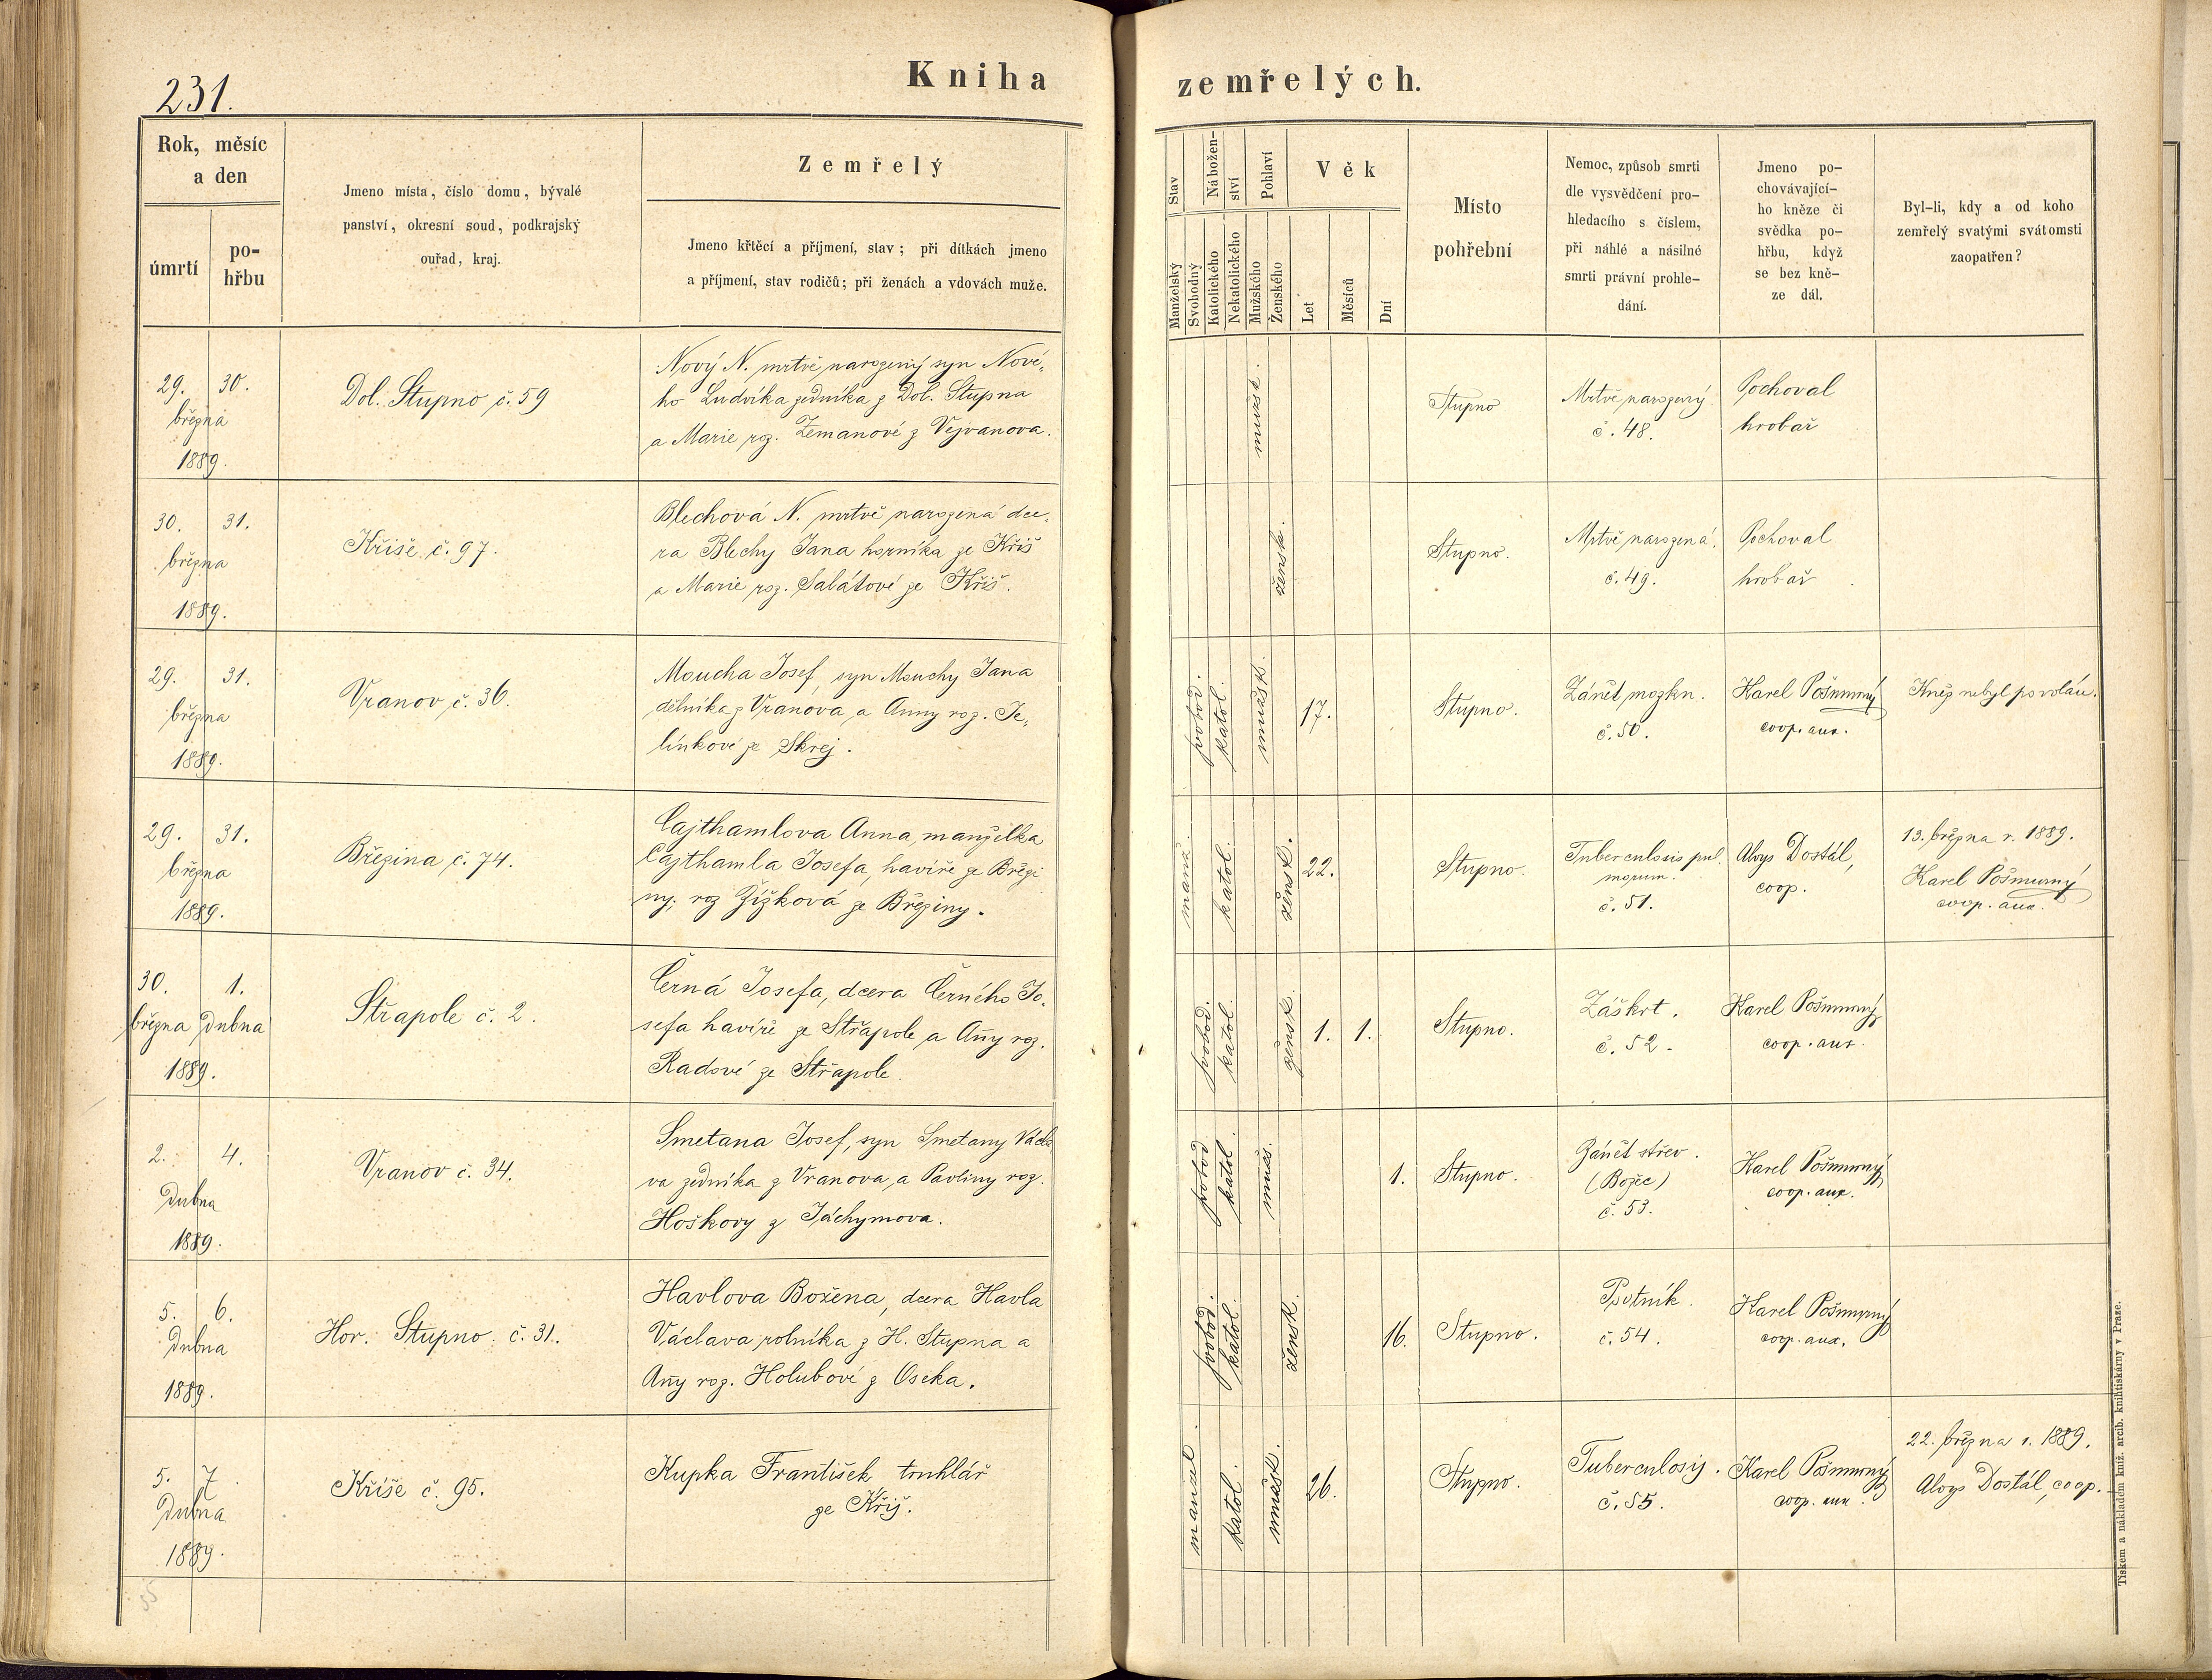 231.
Kniha zemřelých.
Rok, měsíc
a den
úmrtí
po-
hřbu
Jmeno místa, číslo domu, bývalé
panství, okresní soud, podkrajský
ouřad, kraj.
Zemřelý
Jmeno křtěcí a příjmení, stav; při dítkách jmeno
a příjmení, stav rodičů; při ženách a vdovách muže.
Stav
Manželský
Svobodný
Nábožen-
ství
Katolického
Nekatolického
Pohlaví
Mužského
Ženského
Věk
Let
Měsíců
Dní
Místo
pohřební
Nemoc, způsob smrti
dle vysvědčení pro-
hledacího s číslem,
při náhlé a násilné
smrti právní prohle-
dání.
Jmeno po-
chovávající-
ho kněze či
svědka po-
hřbu, když
se bez kně-
ze dál.
Byl-li, kdy a od koho
zemřelý svatými svátomsti
zaopatřen?
29. 30.
března
1889.
Dol. Stupno č. 59
Nový N. mrtvě narozený syn Nové-
ho Ludvíka zedníka z Dol. Stupna
a Marie roz. Zemanové z Vejvanova.
mužsk.
Stupno
Mrtvě narozený
č. 48.
Pochoval
hrobař
30. 31.
března
1889.
Kříše č. 97.
Blechová N. mrtvě narozená dce-
ra Blechy Jana horníka ze Kříš
a Marie roz. Sabátové ze Kříš.
žensk.
Stupno.
Mrtvě narozená.
č. 49.
Pochoval
hrobař
29. 31.
března
1889.
Vranov č. 36.
Moucha Josef, syn Mouchy Jana
dělníka z Vranova a Anny roz. Je-
línkové ze Skrej.
svobod.
katol.
mužsk.
17.
Stupno.
Zánět mozkn.
č. 50.
Karel Pošmurný
coop. aux.
Kněz nebyl povolán.
29. 31.
března
1889.
Březina č. 74.
Cajthamlova Anna, manželka
Cajthamla Josefa, havíře ze Březi
ny; roz Žižková ze Březiny.
manž.
katol.
žensk.
22.
Stupno.
Tuberculosis pul.
monum.
č. 51.
Aloys Dostál,
coop.
13. března r. 1889.
Karel Pošmurný
coop. aux.
30. 1.
března dubna
1889.
Střapole č. 2.
Černá Josefa, dcera Černého Jo-
sefa havíře ze Střapole a Ann̄y roz.
Radové ze Střapole.
svobod.
katol.
žensk.
1. 1.
Stupno.
Záškrt.
č. 52.
Karel Pošmurný
coop. aux.
2. 4.
Dubna
1889.
Vranov č. 34.
Smetana Josef, syn Smetany Václa
va zedníka z Vranova, a Pavliny roz.
Hoškovy z Jáchymova.
svobod
katol.
muž.
1.
Stupno.
Zánět střev.
(Božec)
č. 53.
Karel Pošmurný
coop. aux.
5. 6.
Dubna
1889.
Hor. Stupno. č. 31.
Havlova Božena, dcera Havla
Václava rolníka z H. Stupna a
An̄y roz. Holubové z Oseka.
svobod.
katol.
žensk.
16.
Stupno.
Psotník.
č. 54.
Karel Pošmurný
coop. aux.
5. 7.
Dubna
1889.
Kříše č. 95.
Kupka František truhlář
ze Kříš.
manžel.
katol.
mužsk.
26.
Stupno.
Tuberculosis.
č. 55.
Karel Pošmurný
coop. aux.
22. března r. 1889.
Aloys Dostál, coop.
Tiskem a nákladem kníž. arcib. knihtiskárny v Praze.